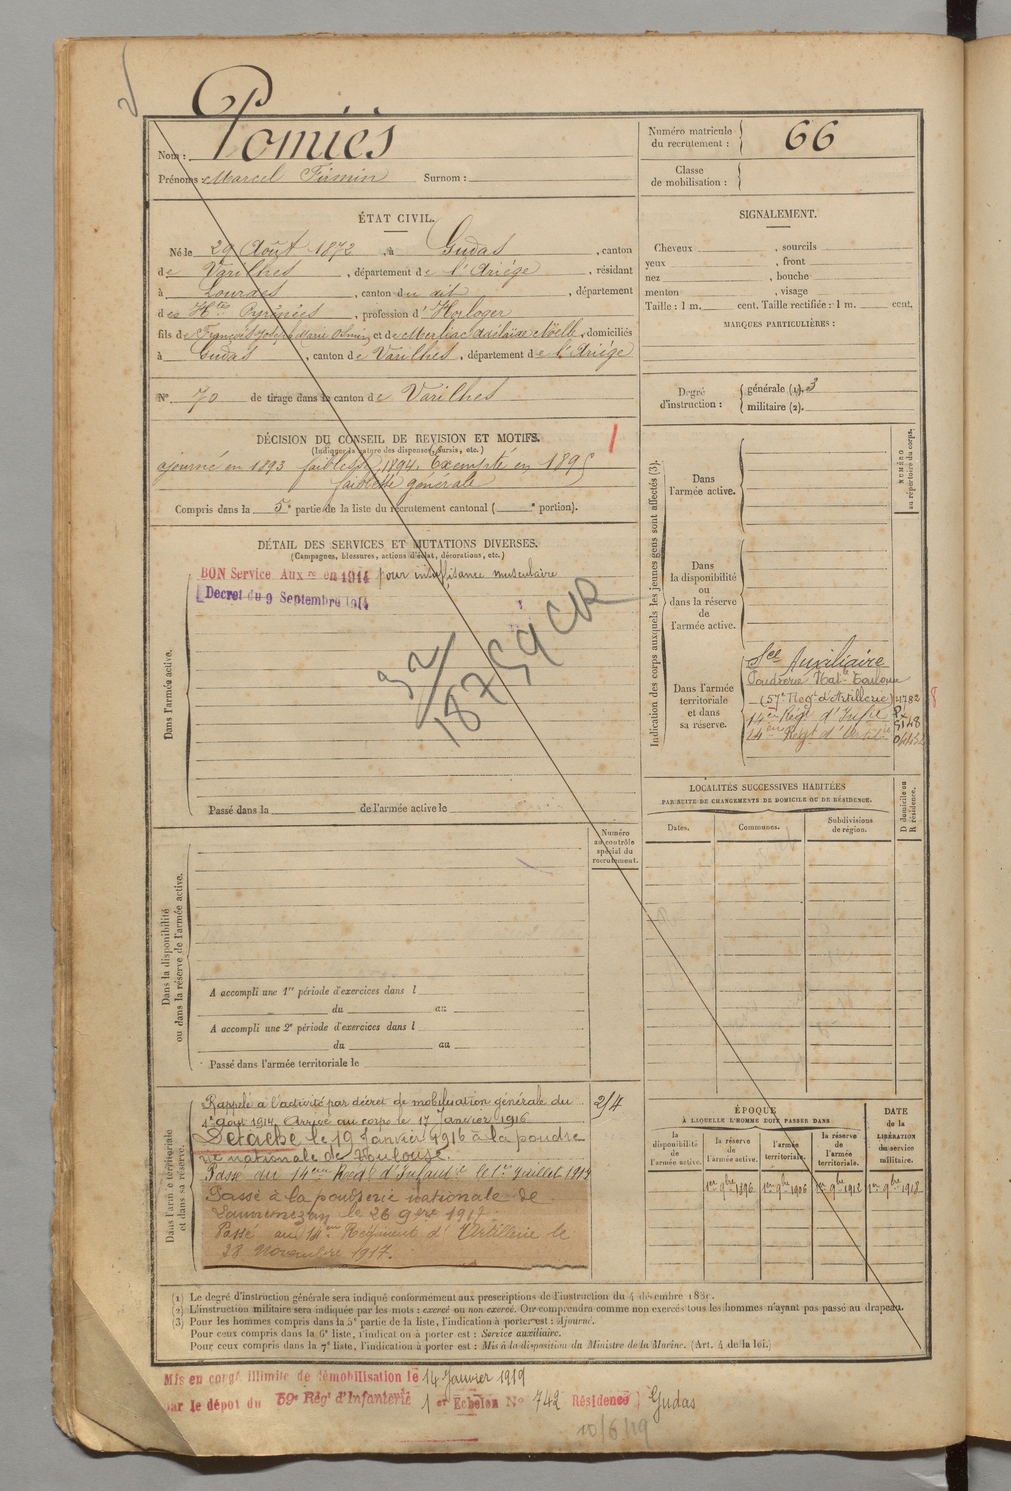 Pomiès
Nom :
Prénoms : Marcel Firmin Surnom :
Numéro matricule
du recrutement : 66
Classe
de mobilisation :
ÉTAT CIVIL.
Né le 29 Août 1872, à Gudas, canton
de Varilhes, département de l'Ariège, résidant
à Lourdes, canton du dit, département
des Htes Pyrénées, profession d'Horloger
fils de François Joseph Marie et de Merliac Adélaïde Noëlle, domiciliés
à Gudas, canton de Varilhes, département de l'Ariége
N° 70 de tirage dans le canton de Varilhes
SIGNALEMENT.
Cheveux , sourcils
yeux , front
nez , bouche
menton , visage
Taille : 1 m. cent. Taille rectifiée : 1 m. cent.
MARQUES PARTICULIÈRES :
Degré
d'instruction :
générale (1). 3
militaire (2).
DÉCISION DU CONSEIL DE REVISION ET MOTIFS.
(Indiquer la nature des dispenses, sursis, etc.)
1
ajourné en 1893 faiblesse, 1894. Exempté en 1895
faiblesse générale
Compris dans la 5e partie de la liste du recrutement cantonal ( e portion).
DÉTAIL DES SERVICES ET MUTATIONS DIVERSES.
(Campagnes, blessures, actions d'éclat, décorations, etc.)
BON Service Auxre en 1914 pour insuffisance musculaire
Decret du 9 Septembre 1914
92/18759 CR
Dans l'armée active.
Passé dans la de l'armée active le
Indication des corps auxquels les jeunes gens sont affectés (3).
NUMÉRO
au répertoire du corps.
Dans
l'armée active.
Dans
la disponibilité
ou
dans la réserve
de
l'armée active.
Dans l'armée
territoriale
et dans
sa réserve.
Sce Auxiliaire
Poudrerie Natle Toulouse
(57e Regt d'Artillerie) 4782 8
14eme Régt d'Infie
14eme Regt d'Artie
LOCALITÉS SUCCESSIVES HABITÉES
PAR SUITE DE CHANGEMENTS DE DOMICILE OU DE RÉSIDENCE.
Dates. Communes. Subdivisions
de région.
D domicile ou
R résidence.
Numéro
au contrôle
spécial du
recrutement.
Dans la disponibilité
ou dans la réserve de l'armée active.
A accompli une 1re période d'exercices dans l
du au
A accompli une 2e période d'exercices dans l
du au
Passé dans l'armée territoriale le
Dans l'armée territoriale
et dans sa réserve.
Rappelé à l'activité par décret de mobilisation générale du 2/4
1er Aout 1914. Arrivé au corps le 17 Janvier 1916
Détaché le 19 Janvier 1916 à la poudre
rie nationale de Toulouse.
Passé au 14eme Regt d'Infanterie le 1er Juillet 1917
Passé à la poudrerie nationale de
Lannemezan le 26 9bre 1917.
Passé au 14eme Régiment d'Artillerie le
28 Novembre 1917.
ÉPOQUE
À LAQUELLE L'HOMME DOIT PASSER DANS
la
disponibilité
de
l'armée active.
la réserve
de
l'armée active.
l'armée
territoriale.
la réserve
de
l'armée
territoriale.
DATE
de la
LIBÉRATION
du service
militaire.
1er 9bre 1896 1er 9bre 1906 1er 9bre 1912 1er 9bre 1918
(1) Le degré d'instruction générale sera indiqué conformément aux prescriptions de l'instruction du 4 décembre 1889.
(2) L'instruction militaire sera indiquée par les mots : exercé ou non exercé. On comprendra comme non exercés tous les hommes n'ayant pas passé au drapeau.
(3) Pour les hommes compris dans la 5e partie de la liste, l'indication à porter est : Ajourné.
Pour ceux compris dans la 6e liste, l'indication à porter est : Service auxiliaire.
Pour ceux compris dans la 7e liste, l'indication à porter est : Mis à la disposition du Ministre de la Marine. (Art. 4 de la loi.)
Mis en congé illimité de démobilisation le 14 Janvier 1919
par le dépôt du 59e Régt d'Infanterie 1er Echelon N° 742 Résidence ) Gudas
10/6/19